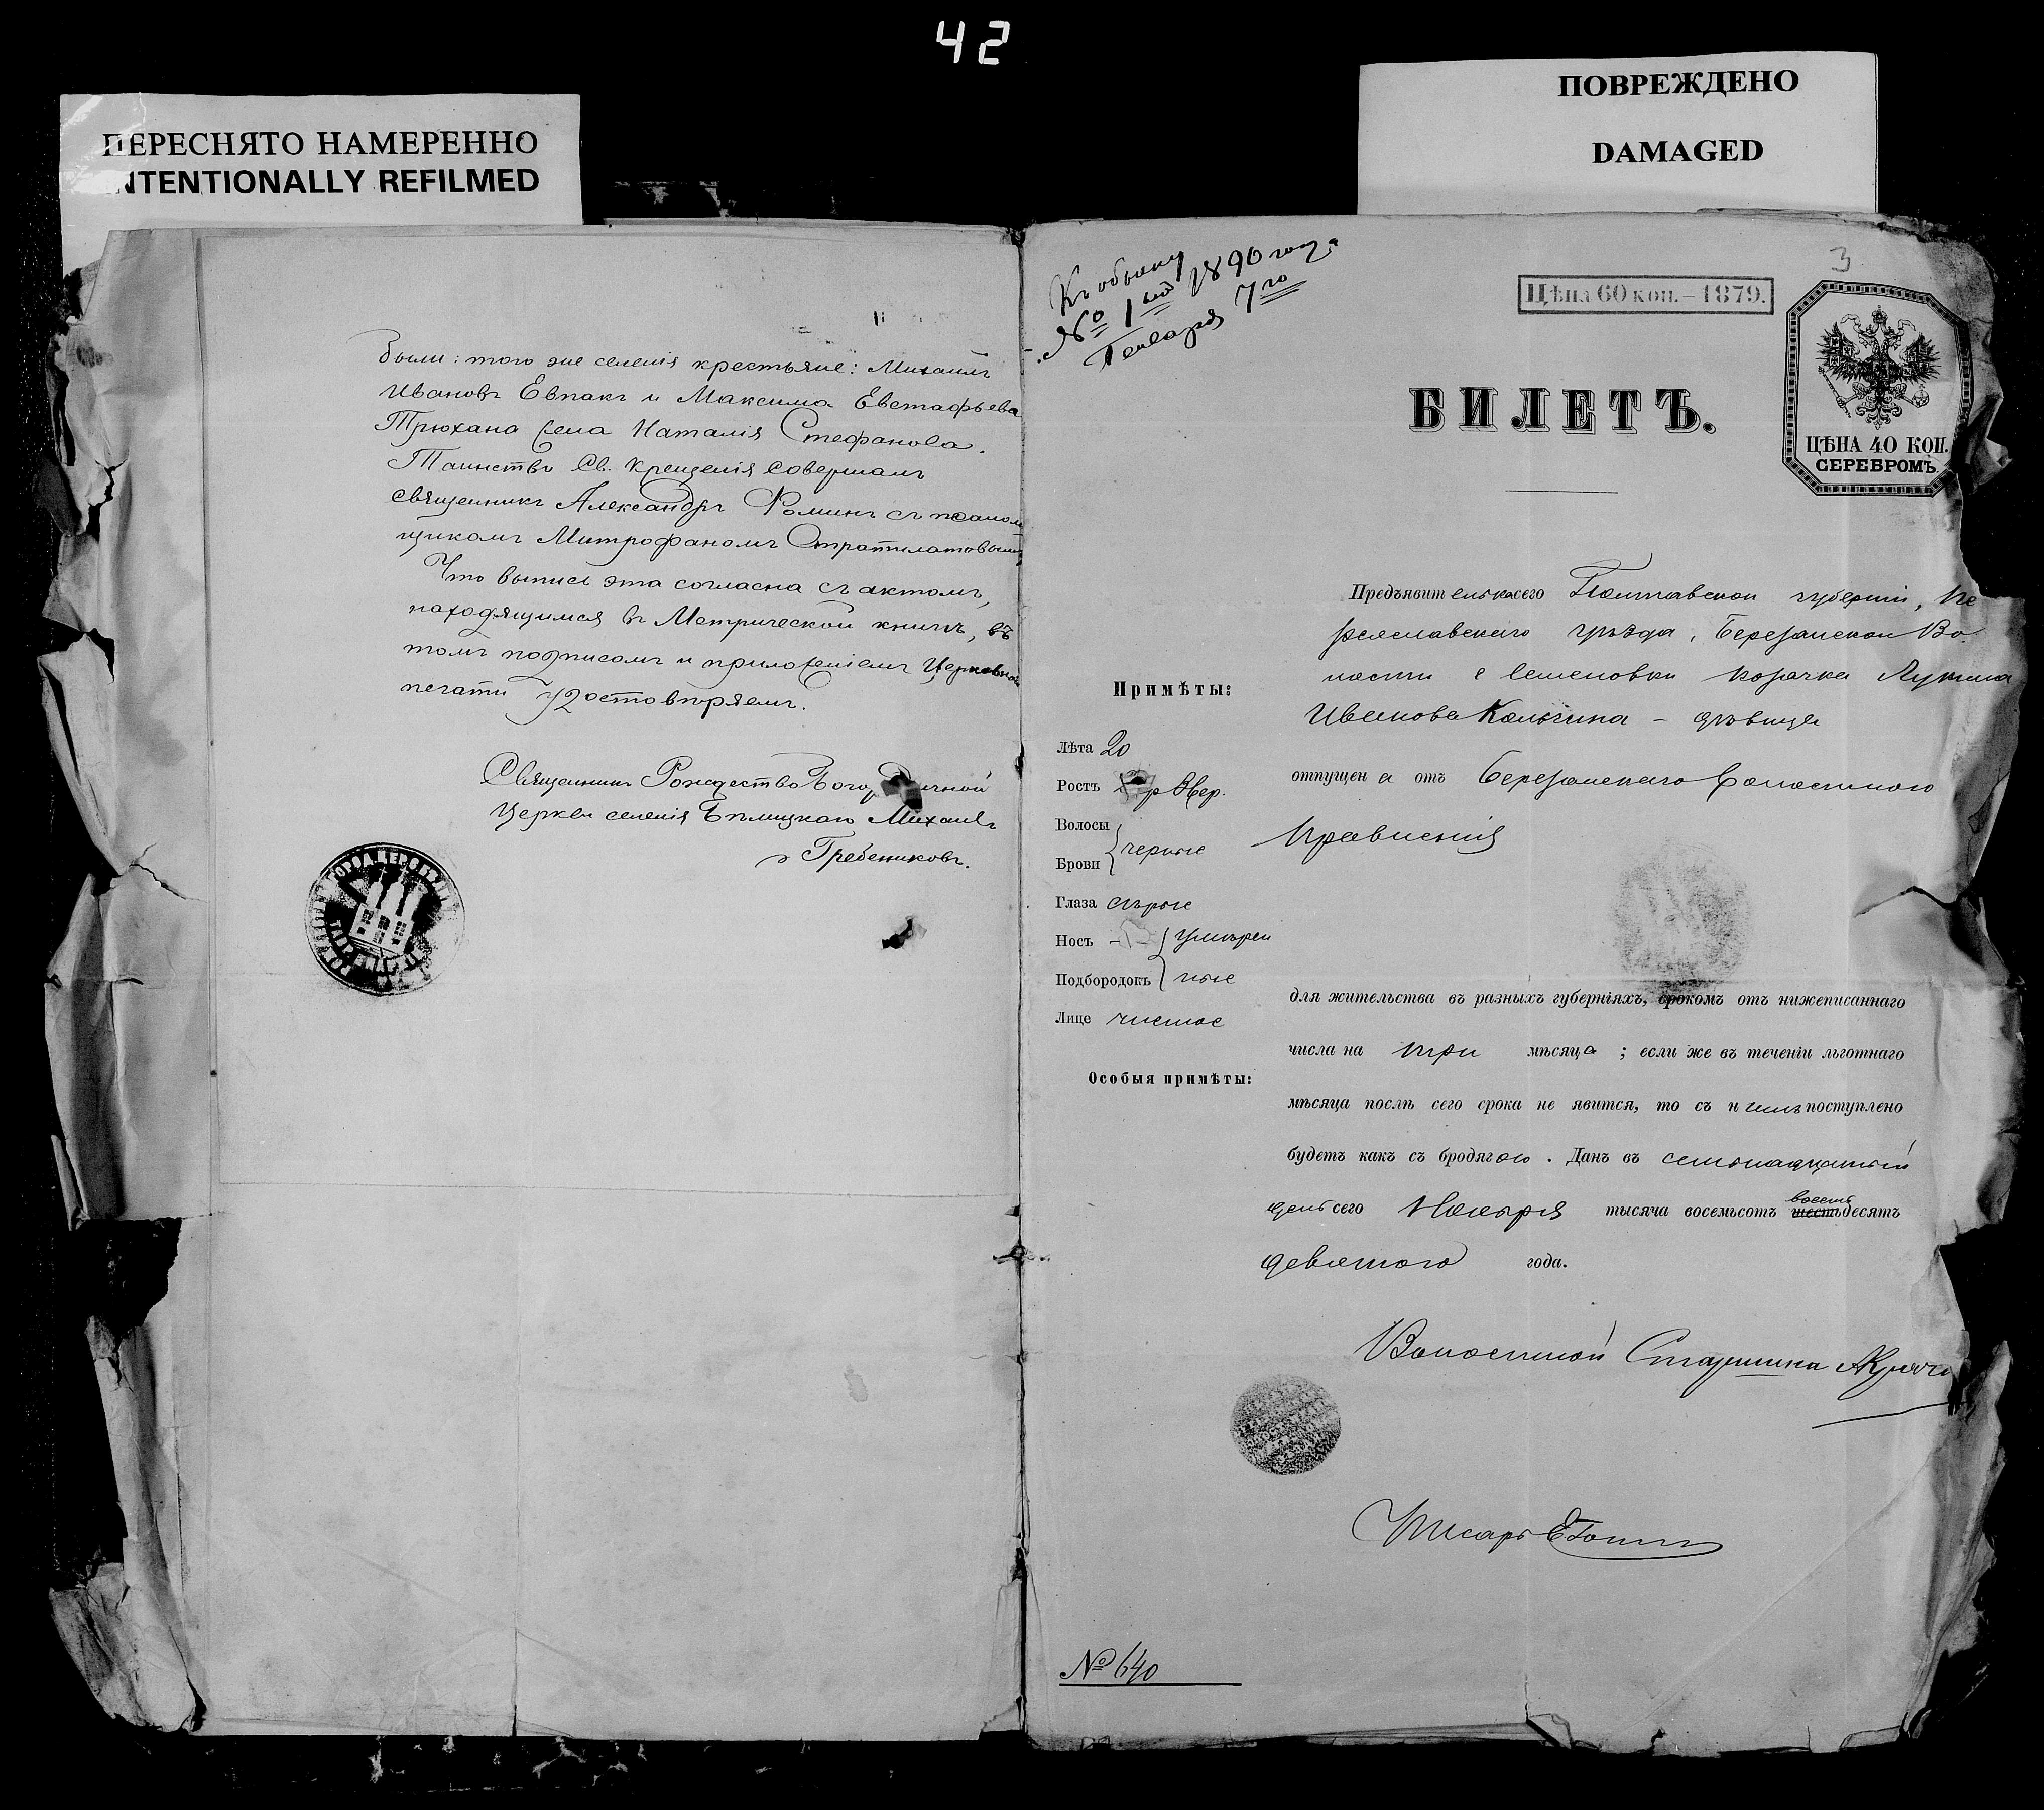 42
ПЕРЕСНЯТО НАМЕРЕННО
INTENTIONALLY REFILMED
ПОВРЕЖДЕНО
DAMAGED
были: того же селенія крестьяне: Михаилъ
Ивановъ Евпакъ и Максима Евстафьева
Трюхана жена Наталія Стефанова.
Таинство Св. Крещенія совершалъ
священникъ Александръ Фоминъ съ псалом
щикомъ Митрофаномъ Стратилатовымъ
Что выпись эта согласна съ актомъ,
находящимся въ Метрической книгѣ, въ
томъ подписомъ и приложеніемъ Церковной
печати удостовѣряемъ.
Священникъ Рождество Богородичной
Церкви селенія Бѣлицкаго Михаилъ
Гребениковъ.
Къ обыску
№ 1й 1890 году
Генваря 7го
3
Цѣна 60 коп.–1879.
БИЛЕТЪ.
ЦѢНА 40 КОП.
СЕРЕБРОМЪ.
Предъявительница сего Полтавской губерніи, Пе
реяславскаго уѣзда, Березанской Во
лости с Семеновки козачка
Иванова – дѣвица
отпущена отъ Березанскаго Волостного
Правленія
Примѣты:
Лѣта 20
Ростъ 2 ар 3 вер.
Волосы
Брови черные
Глаза сѣрые
Носъ умѣрен
Подбородокъ ные
Лице чистое
Особыя примѣты:
для жительства въ разныхъ губерніяхъ, срокомъ отъ нижеписаннаго
числа на три мѣсяца ; если же въ теченіи льготнаго
мѣсяца послѣ сего срока не явится, то съ нею поступлено
будетъ какъ съ бродягою . Данъ въ семнадцатый
день сего Ноября тысяча восемьсотъ шестьдесятъ восемь
девятого года.
Волостной Старшина
Писарь
№ 640